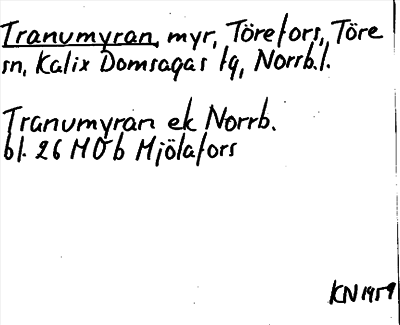 Tranumyran, myr, Törefors, Töre
sn, Kalix Domsagas tg, Norrb.l.
Tranumyran ek Norrb.
bl. 26 MO b Mjölafors
KN 1959